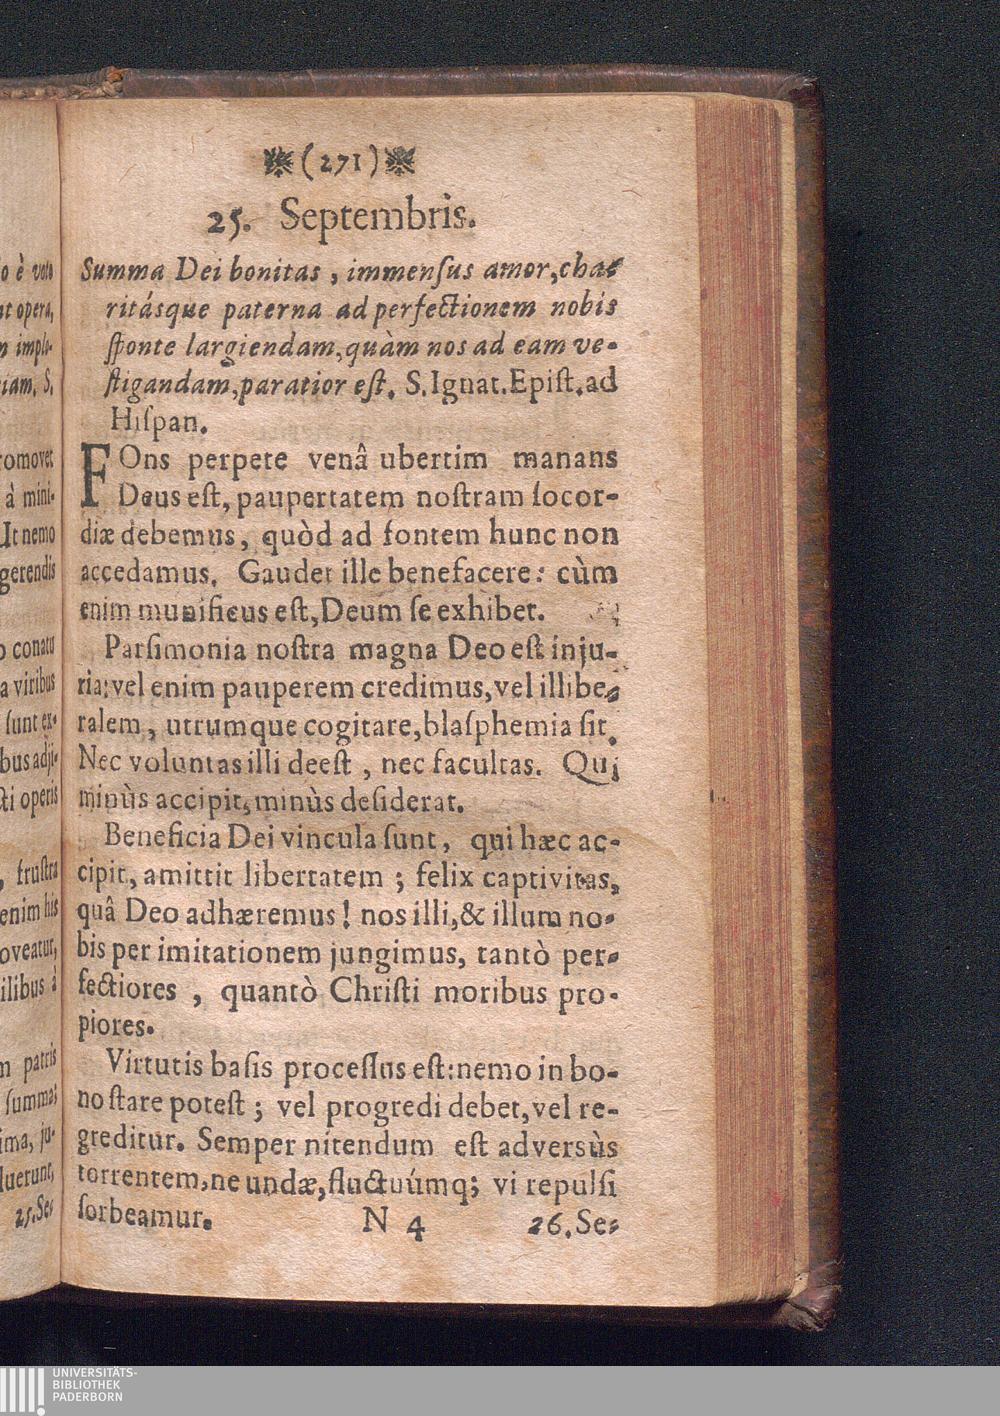 (271)
25. Septembris.
Summa Dei bonitas, immenſus amor, cha-
ritásque paterna ad perfectionem nobis
ſponte largiendam, quàm nos ad eam ve-
ſtigandam, paratior eſt. S. Ignat. Epiſt. ad
Hiſpan.
FOns perpete venâ ubertim manans
Deus eſt, paupertatem noſtram ſocor-
diæ debemus, quòd ad fontem hunc non
accedamus. Gaudet ille benefacere: cùm
enim munificus eſt, Deum ſe exhibet.
Parſimonia noſtra magna Deo eſt inju-
ria: vel enim pauperem credimus, vel illibe-
ralem, utrumque cogitare, blaſphemia ſit.
Nec voluntas illi deeſt, nec facultas. Qui
minùs accipit, minùs deſiderat.
Beneficia Dei vincula ſunt, qui hæc ac-
cipit, amittit libertatem; felix captivitas,
quâ Deo adhæremus! nos illi, & illum no-
bis per imitationem jungimus, tantò per-
fectiores, quantò Chriſti moribus pro-
piores.
Virtutis baſis proceſſus eſt: nemo in bo-
no ſtare poteſt; vel progredi debet, vel re-
greditur. Semper nitendum eſt adversùs
torrentem, ne undæ, fluctuúmq; vi repulſi
ſorbeamur.
N 4 26. Se-
o è voto
nt opera,
m implo-
iam. S.
romovet
à mini-
Ut nemo
gerendis
o conatu
a viribus
ſunt ex-
bus adji-
cti operis
, fruſtra
enim his
oveatur,
ilibus à
m patris
ſummæ
ima, ju-
luerunt,
25. Se-
UNIVERSITÄTS-
BIBLIOTHEK
PADERBORN